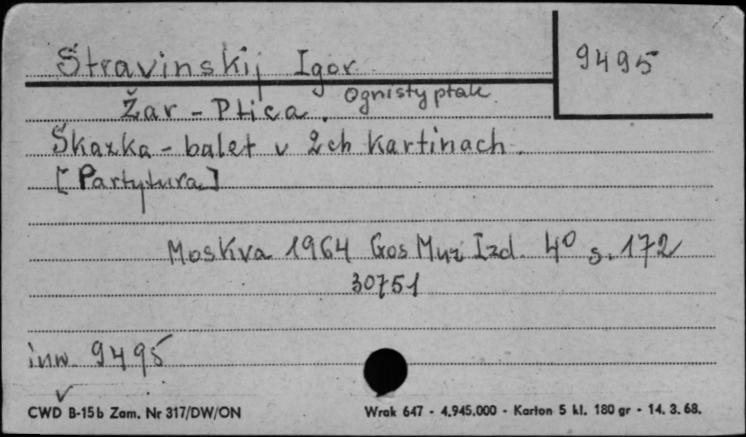 Stravinskij Igor
9495
Žar-Ptica. Ognisty ptak
Skazka-balet v 2ch kartinach.
[Partytura]
Moskva 1964 Gos Muz Izd. 4° s. 172
30751
inw. 9495
CWD B-15b Zam. Nr 317/DW/ON
Wrak 647 - 4.945.000 - Karton 5 kl. 180 gr - 14. 3. 68.